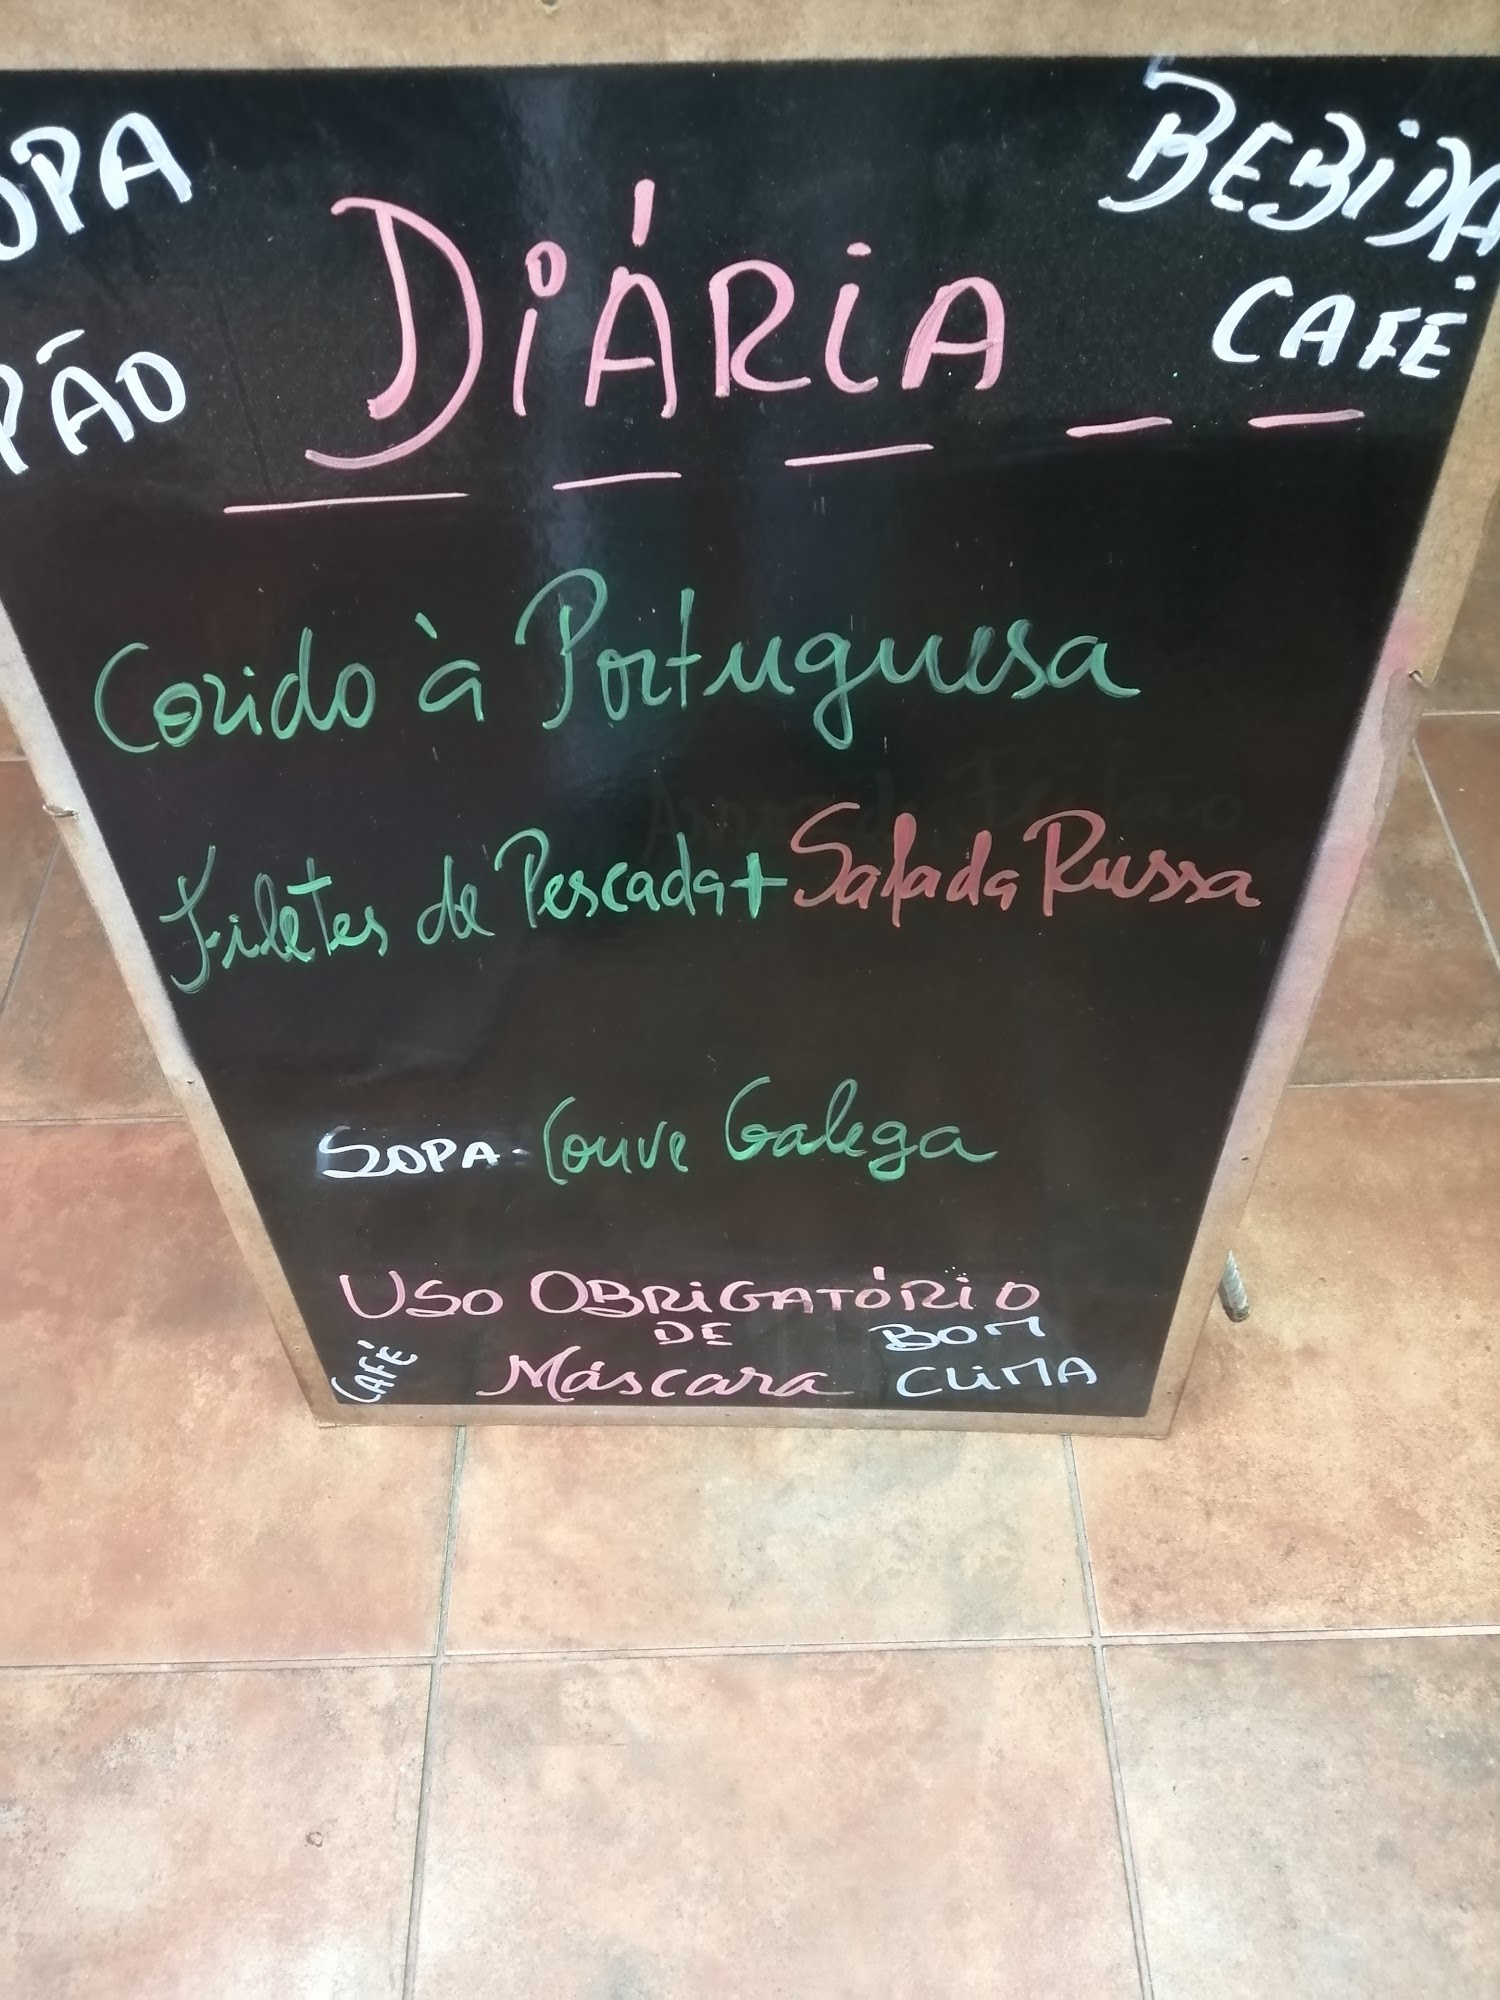 OPA
BEBIDA
PÃO
DIÁRIA
CAFÉ
Cozido à Portuguesa
Filetes de Pescada + Salada Russa
SOPA - Couve Galega
USO OBRIGATÓRIO
DE
MÁSCARA
CAFÉ
BOM
CLIMA